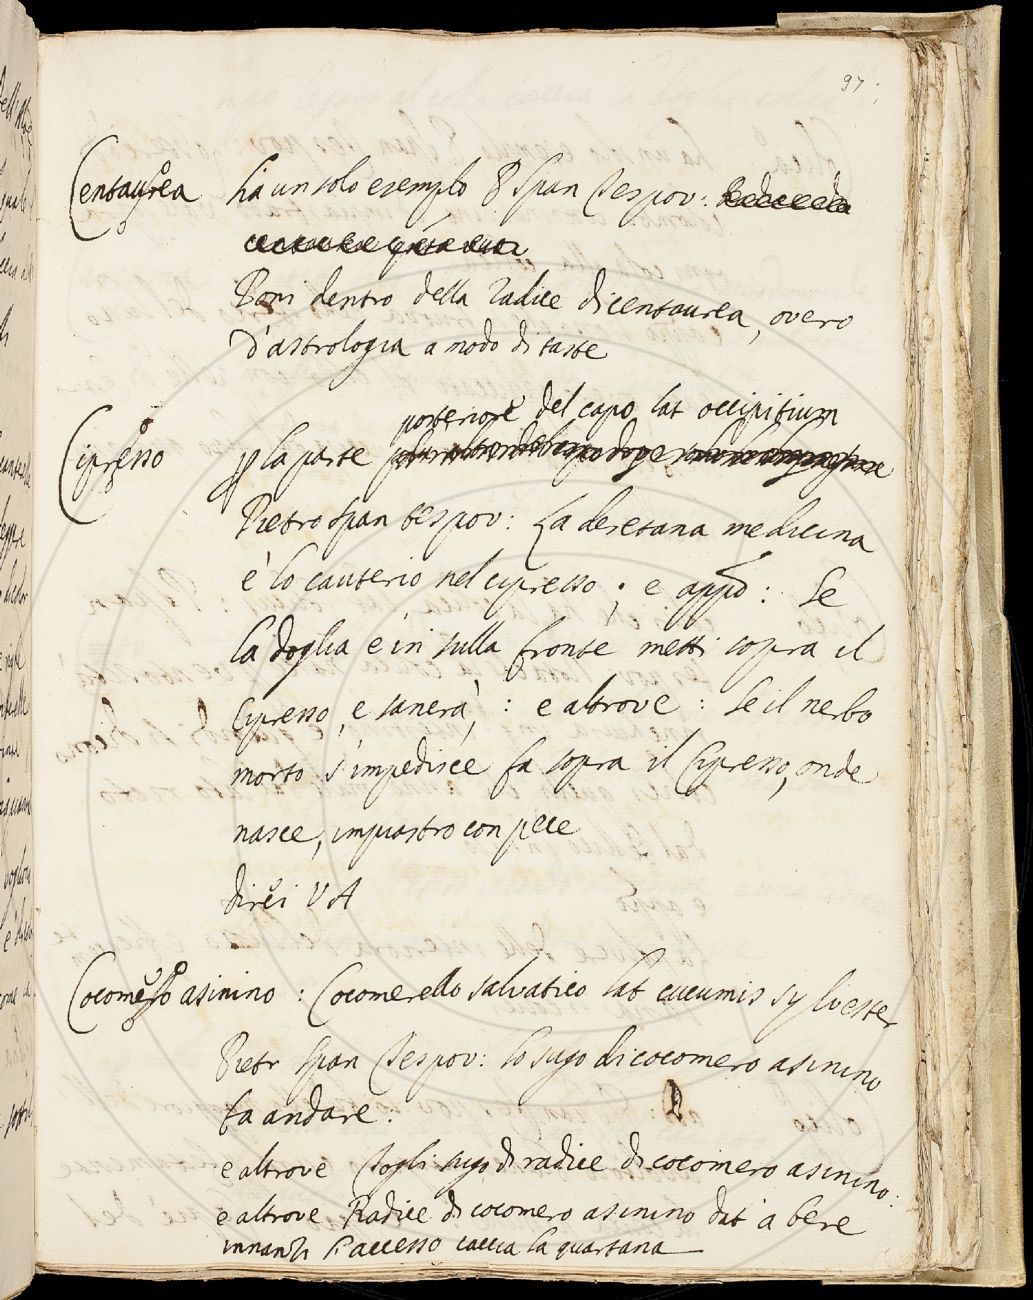 97.
Centaurea ha un solo esempio P Span Tes pov:
Poni dentro della radice di centaurea, overo
d'astrologia a modo di taste
posteriore del capo lat occipitium
Cipresso p la parte
Pietro Span tes pov: La deretana medicina
è lo cauterio nel cipresso; e appo: Se
la doglia è in sulla fronte metti sopra il
Cipresso, e sanerà,: e altrove: Se il nerbo
morto s'impedisce fa sopra il Cipresso, onde
nasce, impiastro con pece
direi VA
Cocomero asinino: Cocomerello salvatico lat cucumis sylvester
Pietr Span Tes pov: lo sugo di cocomero asinino
fa andare.
e altrove Togli sugo di radice di cocomero asinino.
e altrove Radice di cocomero asinino dat' a bere
innanzi l'accesso caccia la quartana